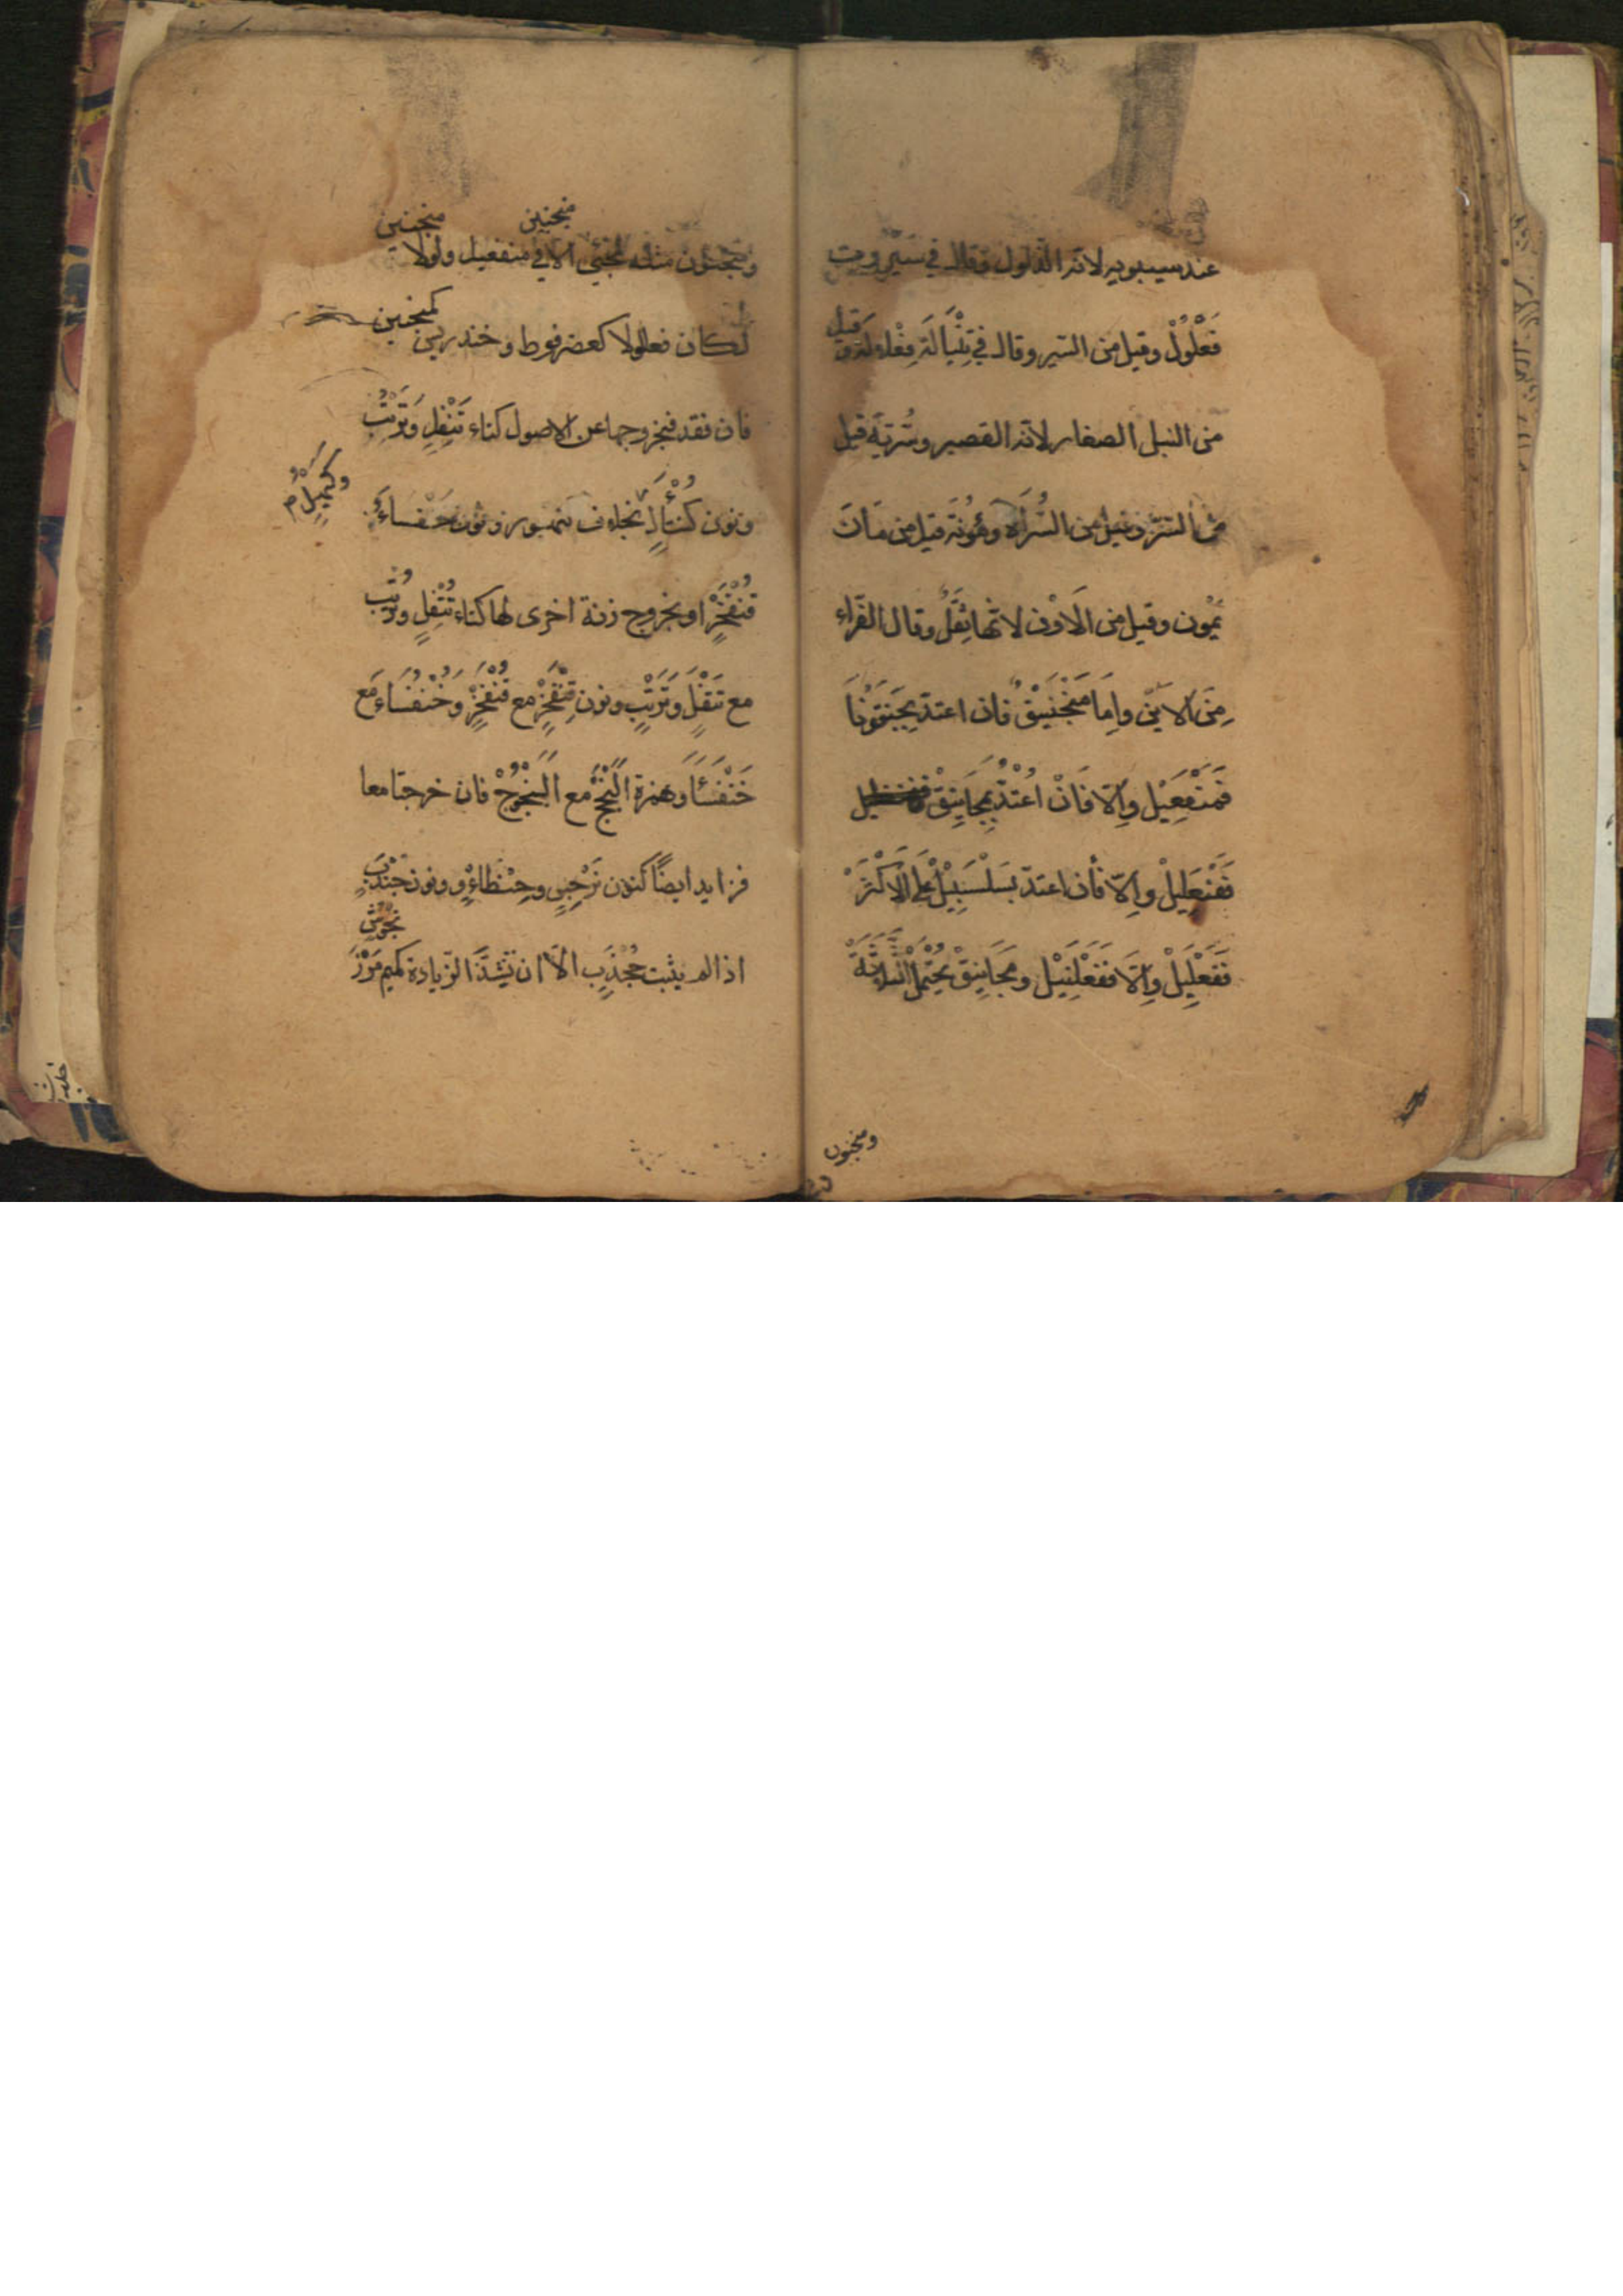 عند سيبويه لانه الذلول وقال في سبروت
فَعْلُولْ وقيل من السبر وقال في تِنْبَالَة فِعْلالة وقيل
من النبل الصغار لانه القصير وسُرّيّة قيل
من السرّ وقيل من السَّراة ومَؤُنة قيل من مَانَ
يَمُون وقيل من الاَوْن لانها ثِقَلٌ وقال الفرّاء
مِنَ الاَيْن واِمّا مَنْجَنِيْقُ فان اعتدّ بِجَنَقُونَا
فَمَنْفَعِيْل واِلّا فَانْ اعْتُدّ بِمَجَانِيْقْ
فَفَنْعَلِيلْ واِلّا فان اعتدّ بسَلْسَبِيْلْ عَلَى الاَكْثَرْ
فَفَعْلَلِيلْ واِلّا فَفَعْلَنِيْل ومَجَانِيْقْ يَحْتَمِلُ الثَّلاثَةَ
ومنجنون
منجنين
منجنين
ومنجنون مثله لمجئ الا في منفعيل ولولا
لكان فعللولا كعضرفوط وخندريس
كمنجنين
فان فقد فبخروجها عن الاصول كتاء تَتْفُلِ وَتَرْتُبْ
ونون كُنْتَأْلٍ بخلاف كنهور ونون خنفساء
قُنْفَخْرٍ او بخروج زنة اخرى لها كتاء تُتْفُلٍ وتُرْتُب
مع تَتْفُلٍ وَتَرْتُبٍ ونون قِنْفَخْرٍ مع قُنْفَخْرٍ وَخُنْفُسَاءَ مَع
خُنْفَسَاءَ وهمزة اَلَنْجَجٍ مع اَلَنْجُوجْ فان خرجتا معا
فزايد ايضاً كنون نَرْجِسٍ وحِنْطَاءٍْو ونون جُنْدَبٍ
اذا لم يثبت جُخْدَبٍ الّا ان تَشُذَّ الزيادة كميم مَرْزَ
نجُوش